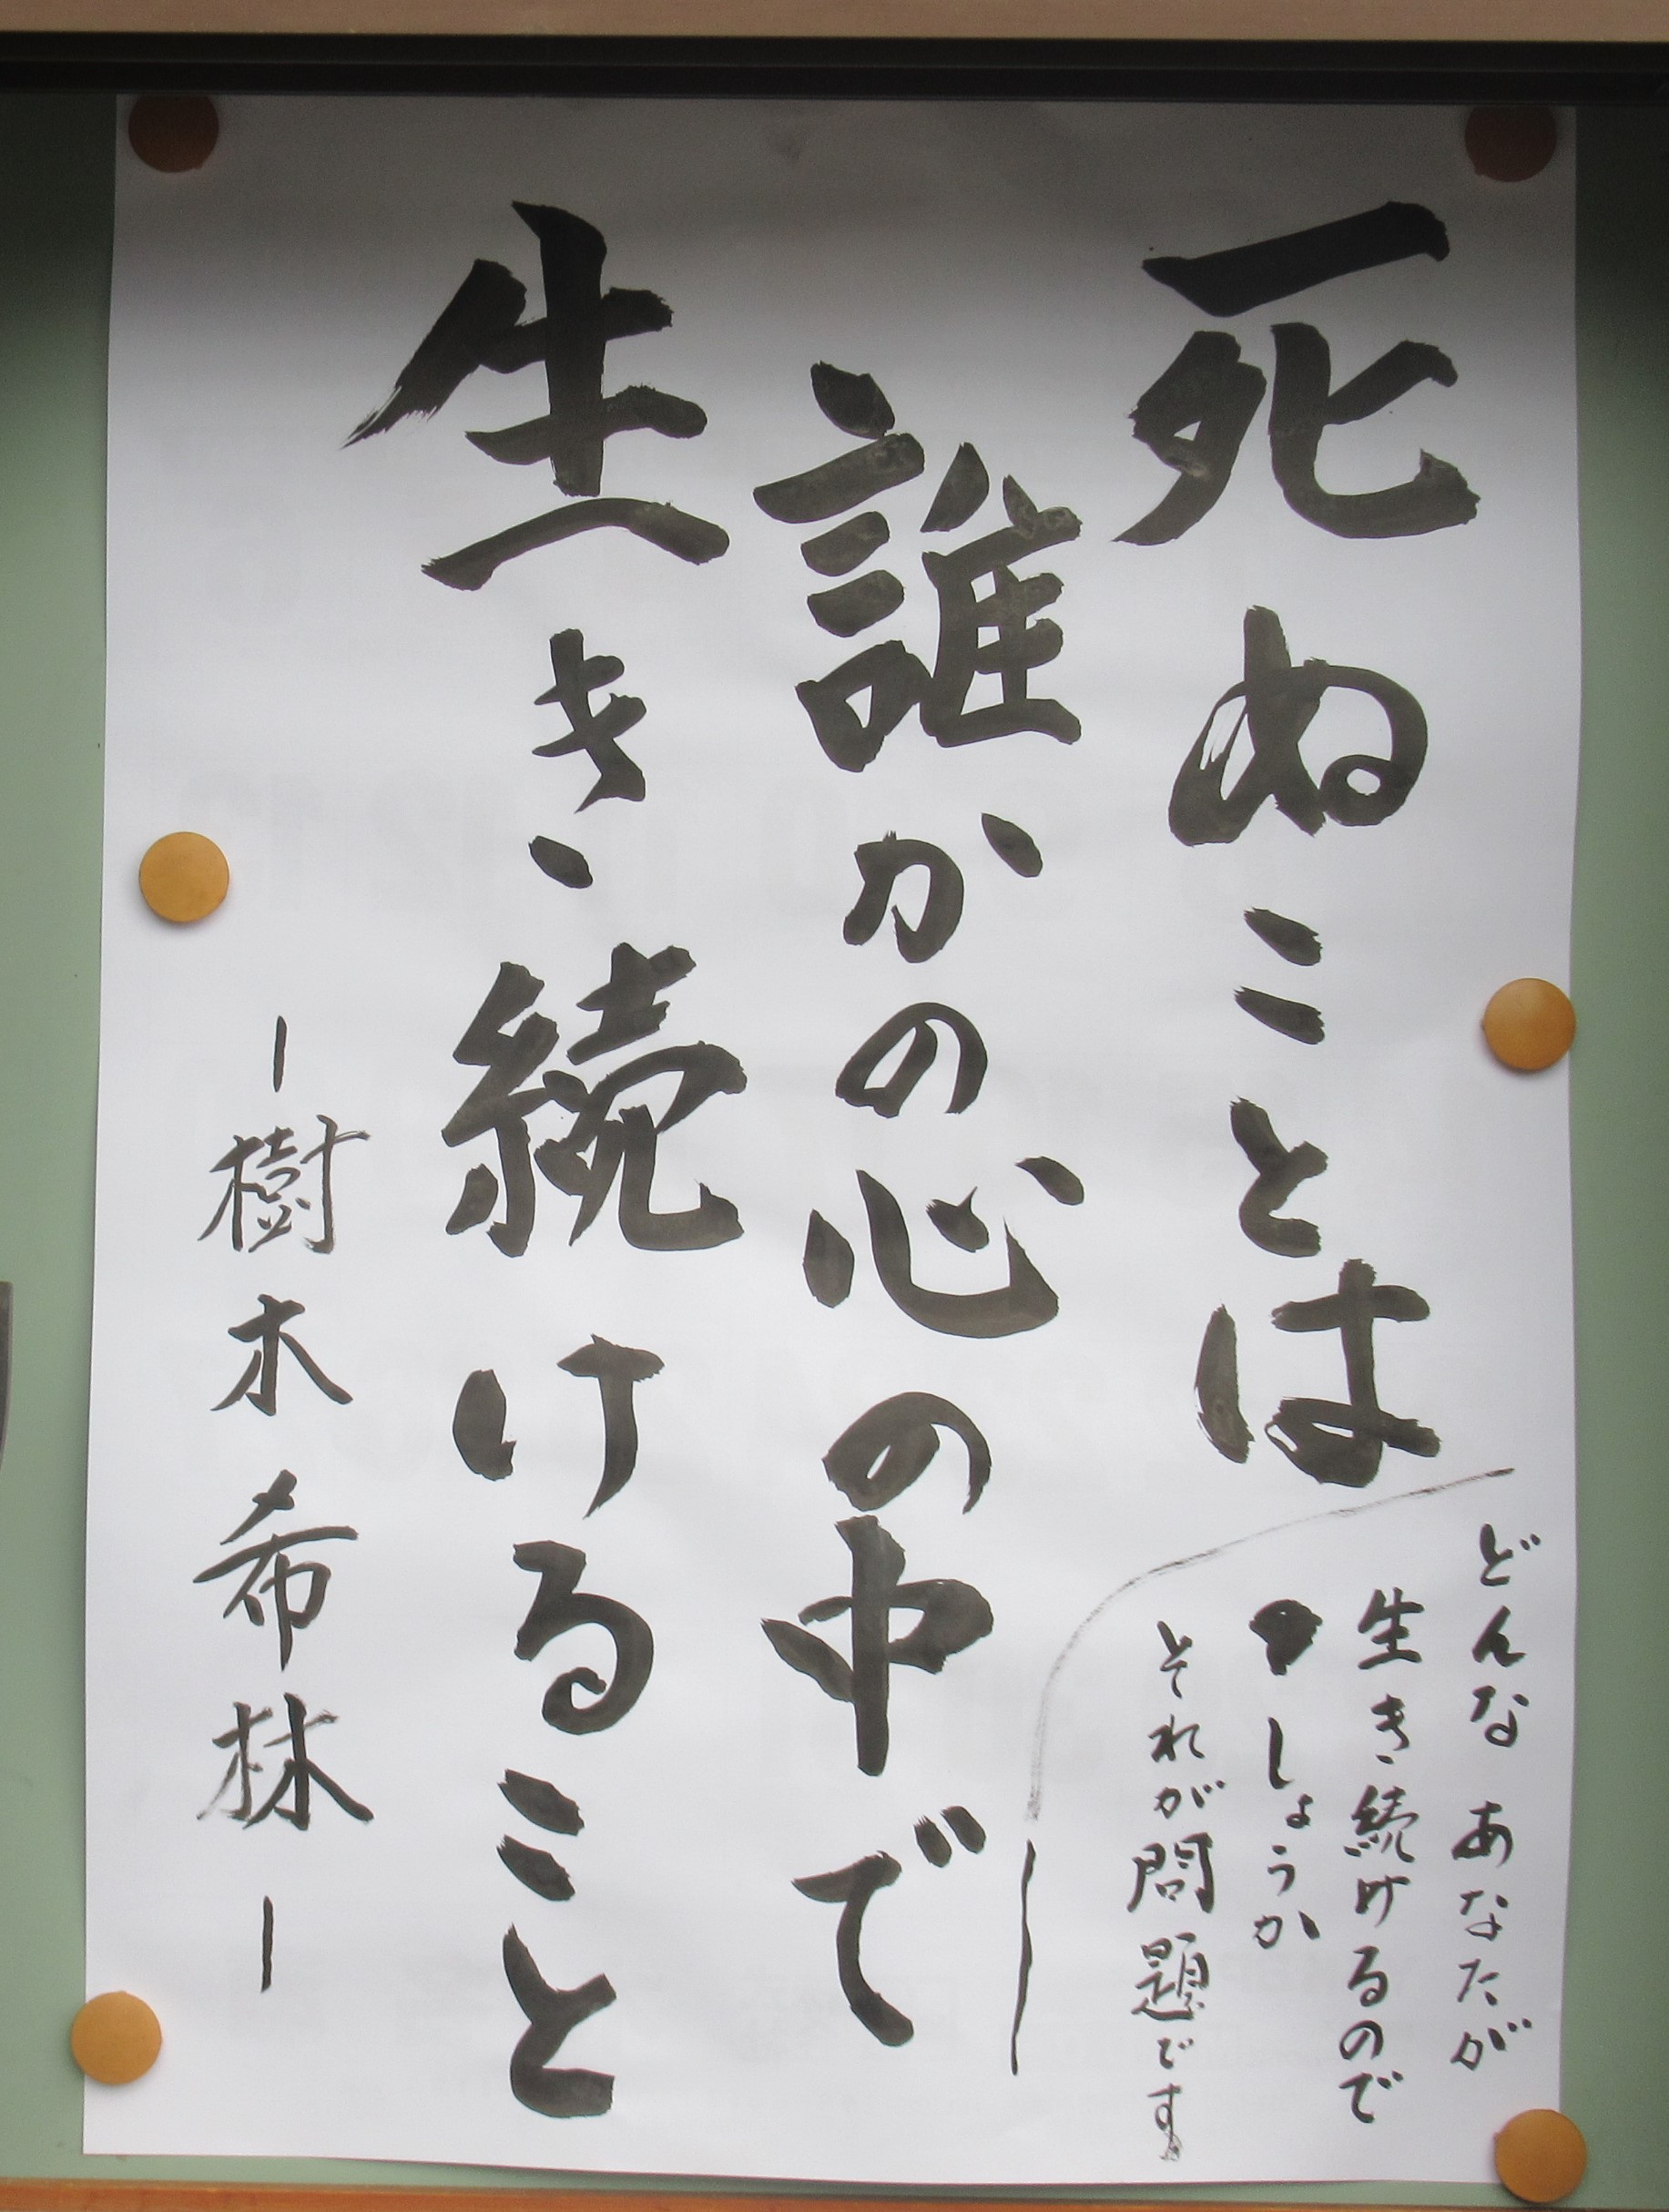 死ぬことは
誰かの心の中で
生き続けること
ー樹木希林ー
どんなあなたが
生き続けるので
しょうか
それが問題です